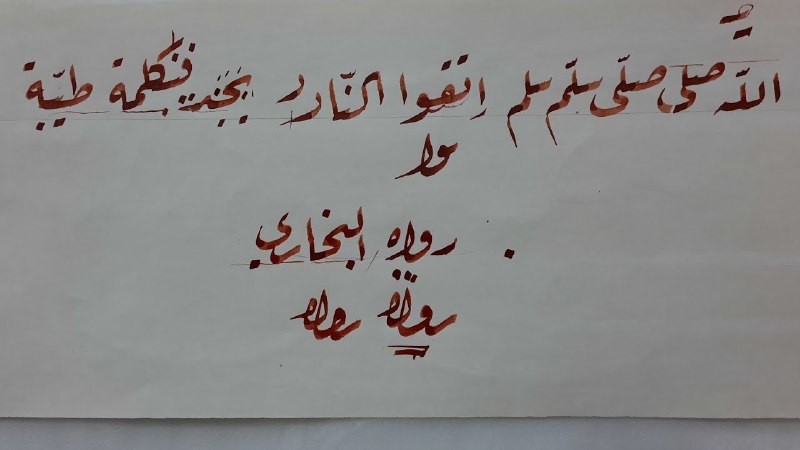 الله صلى صلّى سلّم سلم اتقوا النّار در يجد فبكلمة طيّبة
موا
رواه البخاري
رواه رواه